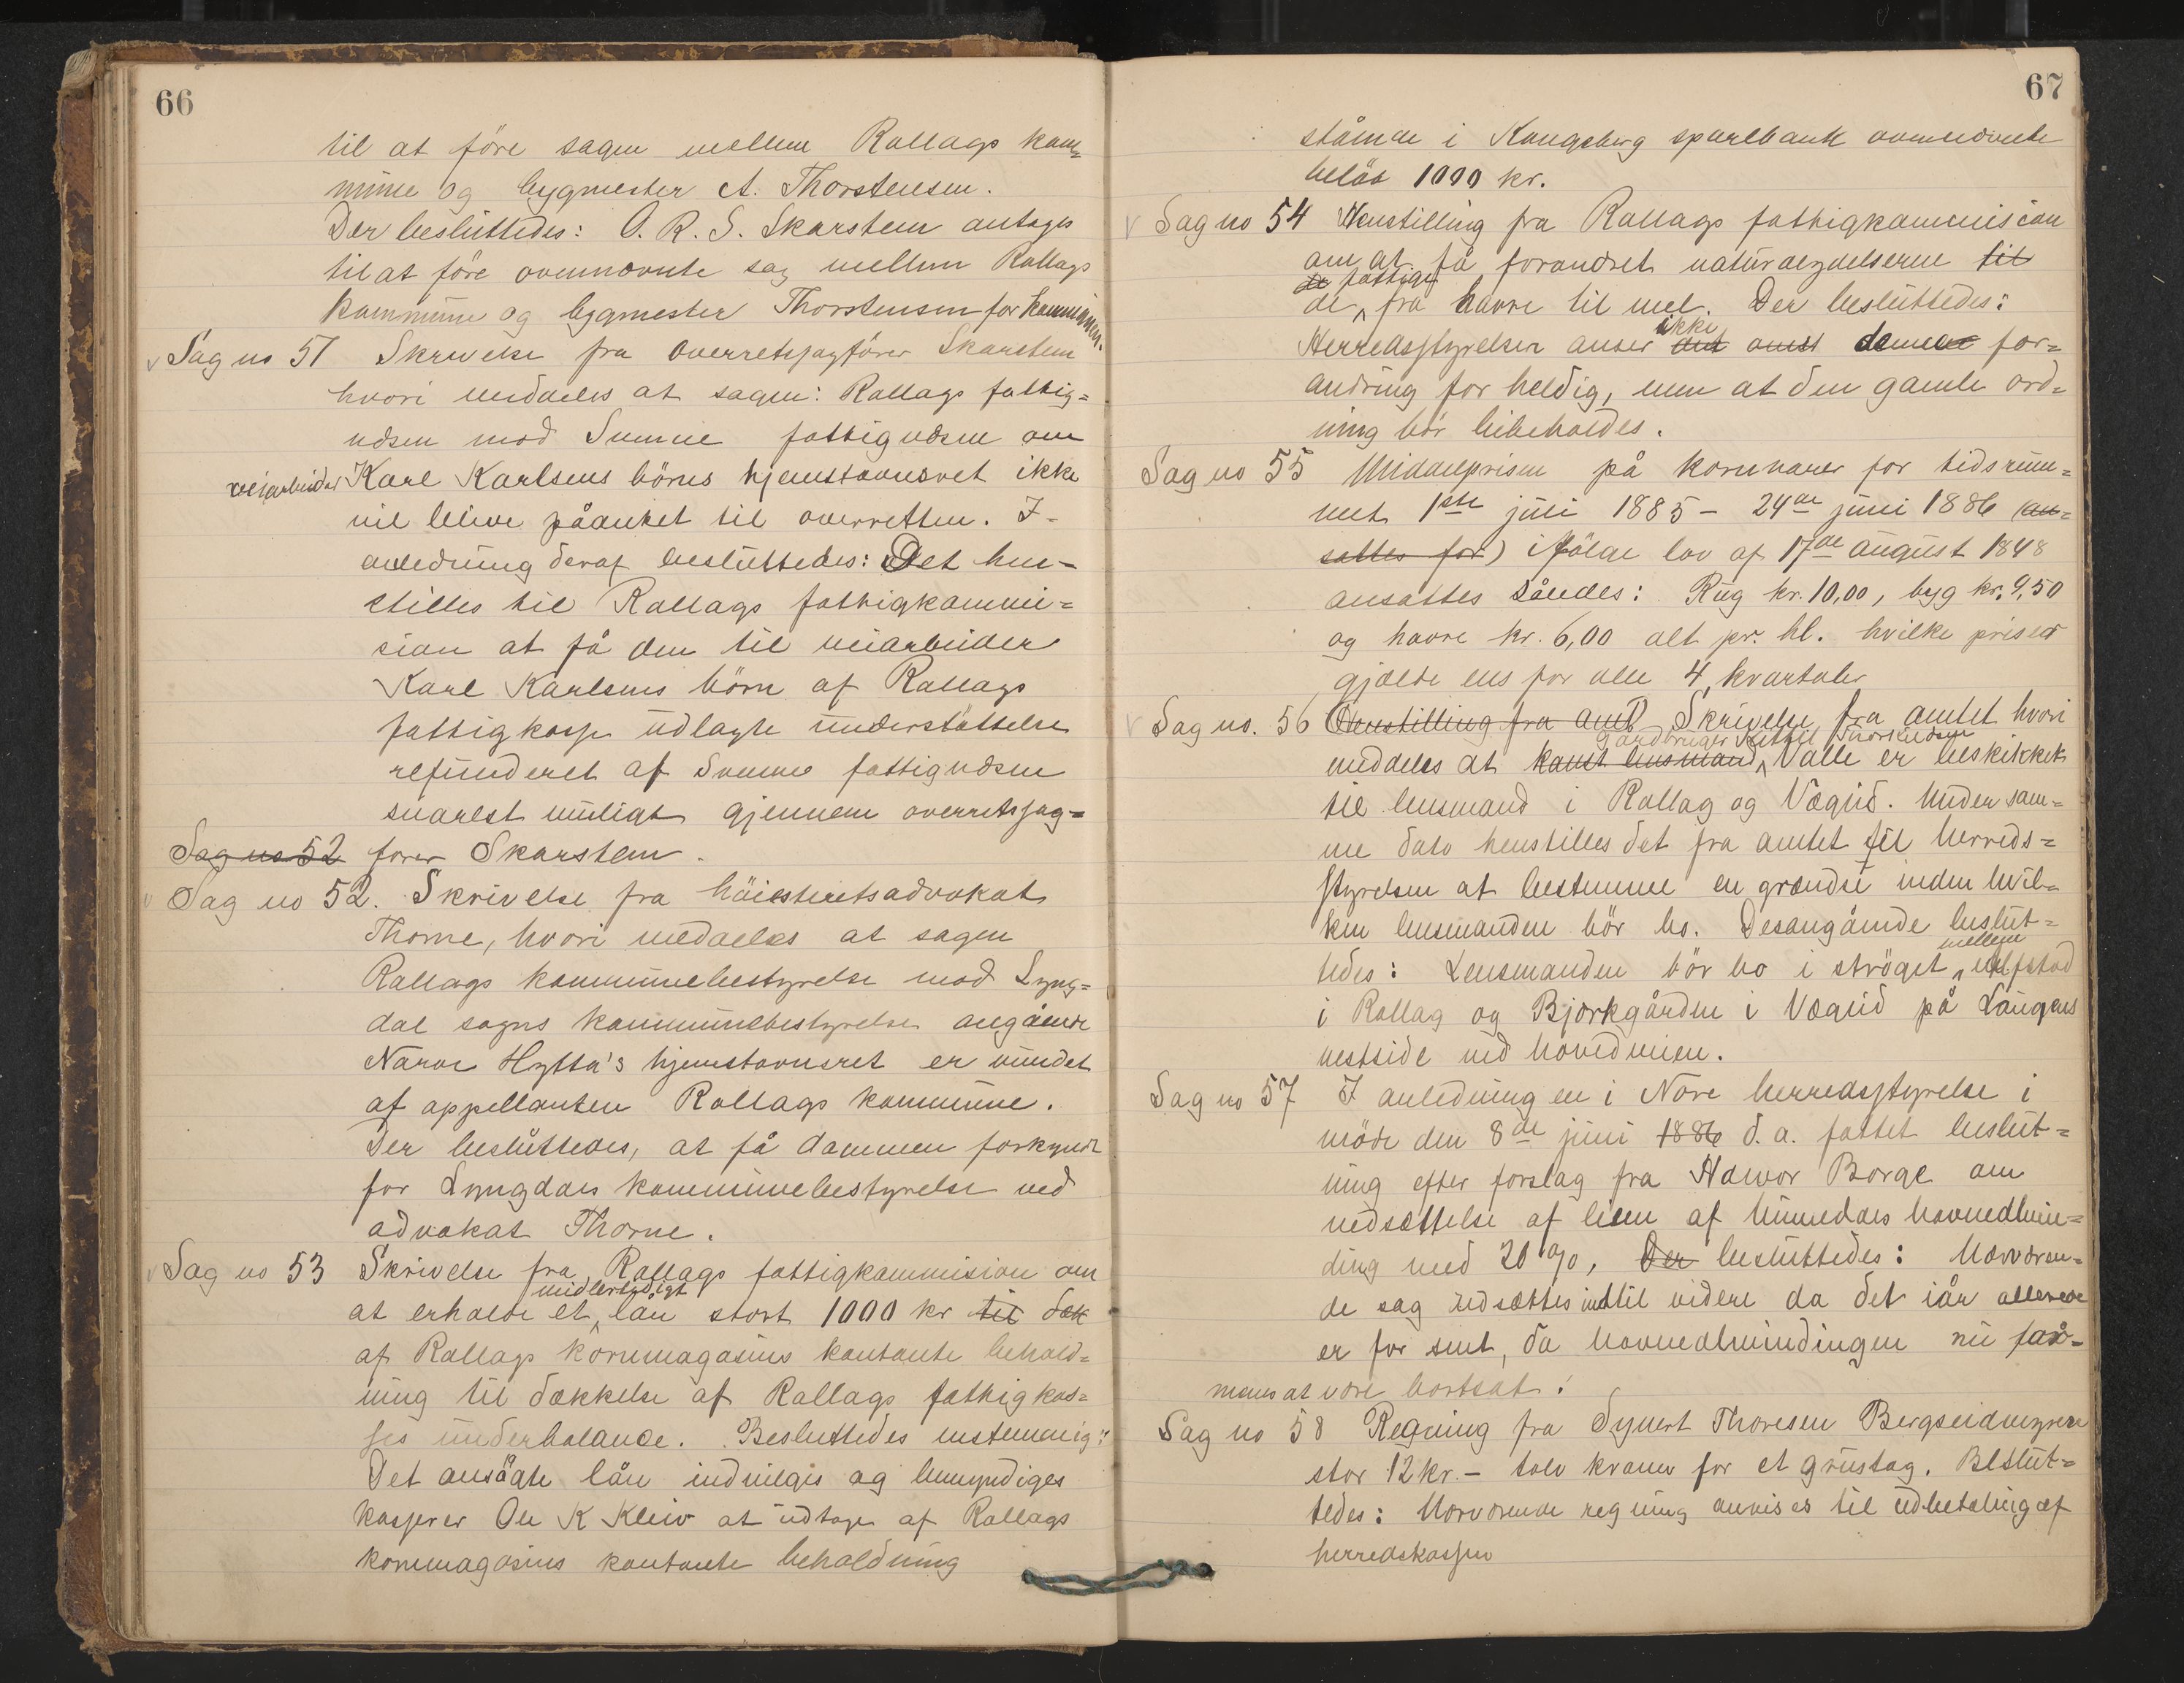 66
til at före sagen mellem Rollags kom=
mune og bygmester A. Thorstensen.
Der besluttedes: O. R. S. Skarstem antages
til at före ovennævnte sag mellem Rollags
kommune og bygmester Thorstensen for kommunen.
Sag no 51 Skrivelse fra Overretssagförer Skarstem
hvori meddeles at sagen: Rollags fattig=
vdsen mod Svenne fattigvdsen om
veiarbeider Karl Karlsens börns hjemstavnsret ikke
vil blive påanket til overretten. I-
anledning deraf besluttedes: Det hen-
stilles til Rollags fattigkommi=
sion at få den til veiarbeider
Karl Karlsens börn af Rollags
fattigkasse udlagte understöttelse
refunderet af Svenne fattigvdsen
snarest muligt gjennem overretssag=
Sag no 52 förer Skarstem.
Sag no 52. Skrivelse fra höiesteretsadvokat
Thorne, hvori meddeles at sagen
Rollags kommunebestyrelse mod Lyng=
dal sogns kommunebestyrelse angående
Narve Hytta's hjemstavnsret er vundet
af appellanten Rollags kommune.
Der besluttedes, at få dommen forkyndt
for Lyngdals kommunebestyrelse ved
advokat Thorne.
Sag no 53 Skrivelse fra Rollags fattigkommision om
midlertidigt
at erholde et lån stort 1000 kr til dæk
af Rollags kornmagasins kontante behold=
ning til dækkelse af Rollags fattigkas=
ses underbalance. Besluttedes enstemmig:
Det ansögte lån indvilges og bemyndiges
kasserer Ole K Kleiv at udtage af Rollags
kornmagasins kontante beholdning
67
stående i Kongsberg sparebank ovennævnte
belöb 1000 kr.
Sag no 54 Henstilling fra Rollags fattigkommision
om at få forandret naturalydelserne til
de fattige
de fra havre til mel. Der besluttedes:
ikke
Herredsstyrelsen anser det denne for=
andring for heldig, men at den gamle ord=
ning bör bibeholdes.
Sag no 55 Middelprisen på kornvarer for tidsrum=
met 1ste juli 1885 - 24de juni 1886 (an=
sættes for) ifölge lov af 17de august 1848
ansættes således: Rug kr. 10,00, byg kr. 9,50
og havre kr. 6,00 alt pr. hl. hvilke priser
gjælde ens for alle 4 kvartaler
Sag no. 56 (Henstilling fra amt) Skrivelse fra amtet hvori
gårdbruger Kittil Thorkildsen
meddeles at lensmand Valle er beskikket
til lensmand i Rollag og Vegli. Under sam=
me dato henstilles det fra amtet til herreds=
styrelsen at bestemme en grændse inden hvil=
ken lensmanden bör bo. Desangående beslut=
mellem
tedes: Lensmanden bör bo i ströget
i Rollag og Bjorkgården i Vegli på Laugens
vestside ved hovedveien.
Sag no 57 I anledning en i Nore herredsstyrelse i
möde den 8de juni 1886 d. a. fattet beslut=
ning efter forslag fra Halvor Borge om
nedsættelse af leien af Numedals havnealmin=
ding med 20%, Der besluttedes: Nærværen=
de sag udsættes indtil videre da det iår allerede
er for sent, da havnealmindingen nu for=
menes at være bortsat.
Sag no 58 Regning fra Syvert Thoresen Bergseidmyrene
stor 12 kr. - tolv kroner for et grustag. Beslut=
tedes: Nærværende regning anvises til udbetaling af
herredskassen